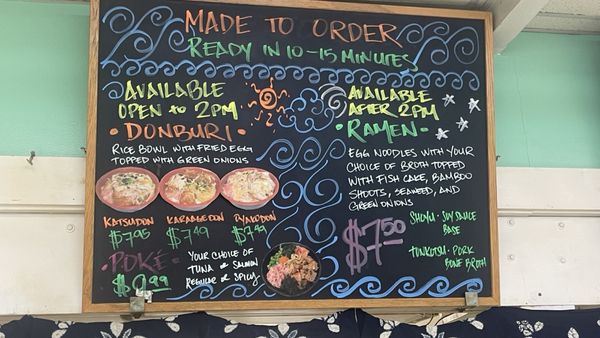 MADE TO ORDER
READY IN 10-15 MINUTES
AVAILABLE
OPEN to 2PM
•DONBURI•
RICE BOWL WITH FRIED EGG
TOPPED WITH GREEN ONIONS
KATSUDON
$7.95
KARAAGEDON
$7.49
$7.49
•POKÉ•
$9.99
YOUR CHOICE OF
TUNA & SALMON
REGULAR & SPICY
AVAILABLE
AFTER 2PM
•RAMEN•
EGG NOODLES WITH YOUR
CHOICE OF BROTH TOPPED
WITH FISH CAKE, BAMBOO
SHOOTS, SEAWEED, AND
GREEN ONIONS
$7.50
SHOYU - SOY SAUCE
BASE
TONKOTSU - PORK
BONE BROTH